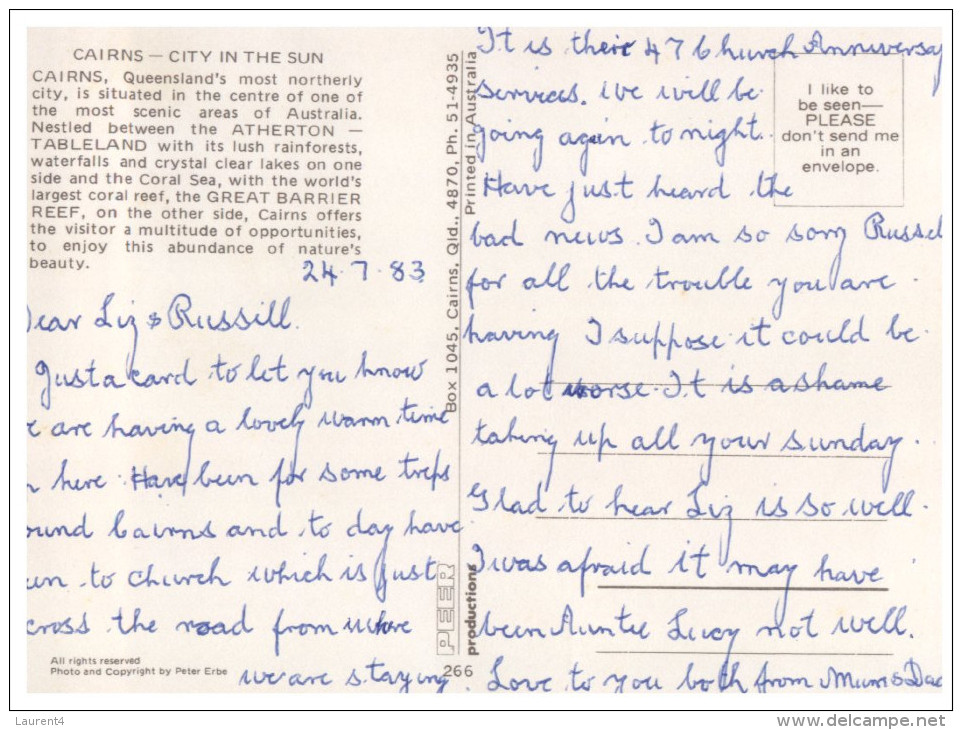 CAIRNS — CITY IN THE SUN
CAIRNS, Queensland's most northerly
city, is situated in the centre of one of
the most scenic areas of Australia.
Nestled between the ATHERTON —
TABLELAND with its lush rainforests,
waterfalls and crystal clear lakes on one
side and the Coral Sea, with the world's
largest coral reef, the GREAT BARRIER
REEF, on the other side, Cairns offers
the visitor a multitude of opportunities,
to enjoy this abundance of nature's
beauty.
24.7.83
Dear Liz & Russill.
Just a card to let you know
e are having a lovely warm time
n here. Have been for some trips
ound Cairns and to day have
een to church which is just
cross the road from where
we are staying.
All rights reserved
Photo and Copyright by Peter Erbe
266
PEER productions
Box 1045, Cairns, Qld., 4870, Ph. 51-4935
Printed in Australia
I like to
be seen—
PLEASE
don't send me
in an
envelope.
It is their 47 Church Anniversay
services. we will be
going again to night.
Have just heard the
bad news. I am so sorry Russel
for all the trouble you are
having I suppose it could be
a lot worse. It is a shame
taking up all your sunday.
Glad to hear Liz is so well.
I was afraid it may have
been Auntie Lucy not well.
Love to you both from Mum & Dad
Laurent4
www.delcampe.net